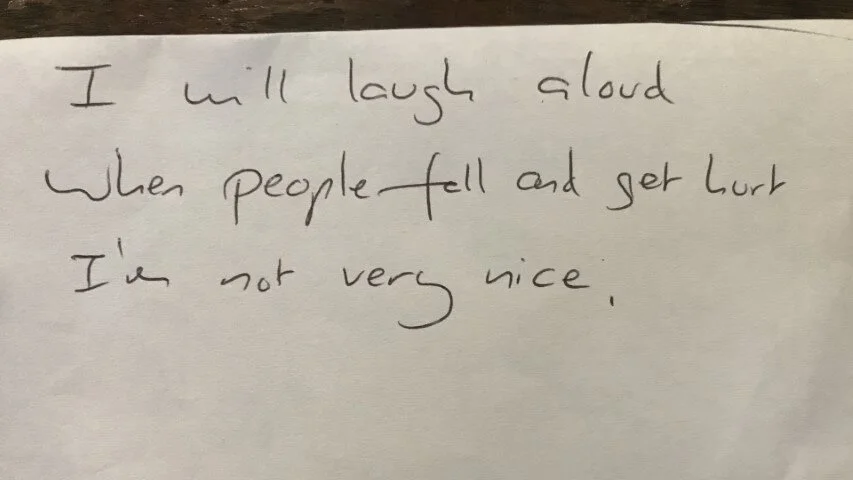 I will laugh aloud
when people fall and get hurt
I'm not very nice.